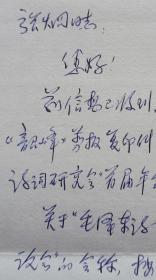 张炯同志：
您好！
前信想已收到，
剪报复印件
诗词研究会"首届年会
关于"毛泽东诗
论会"的会标